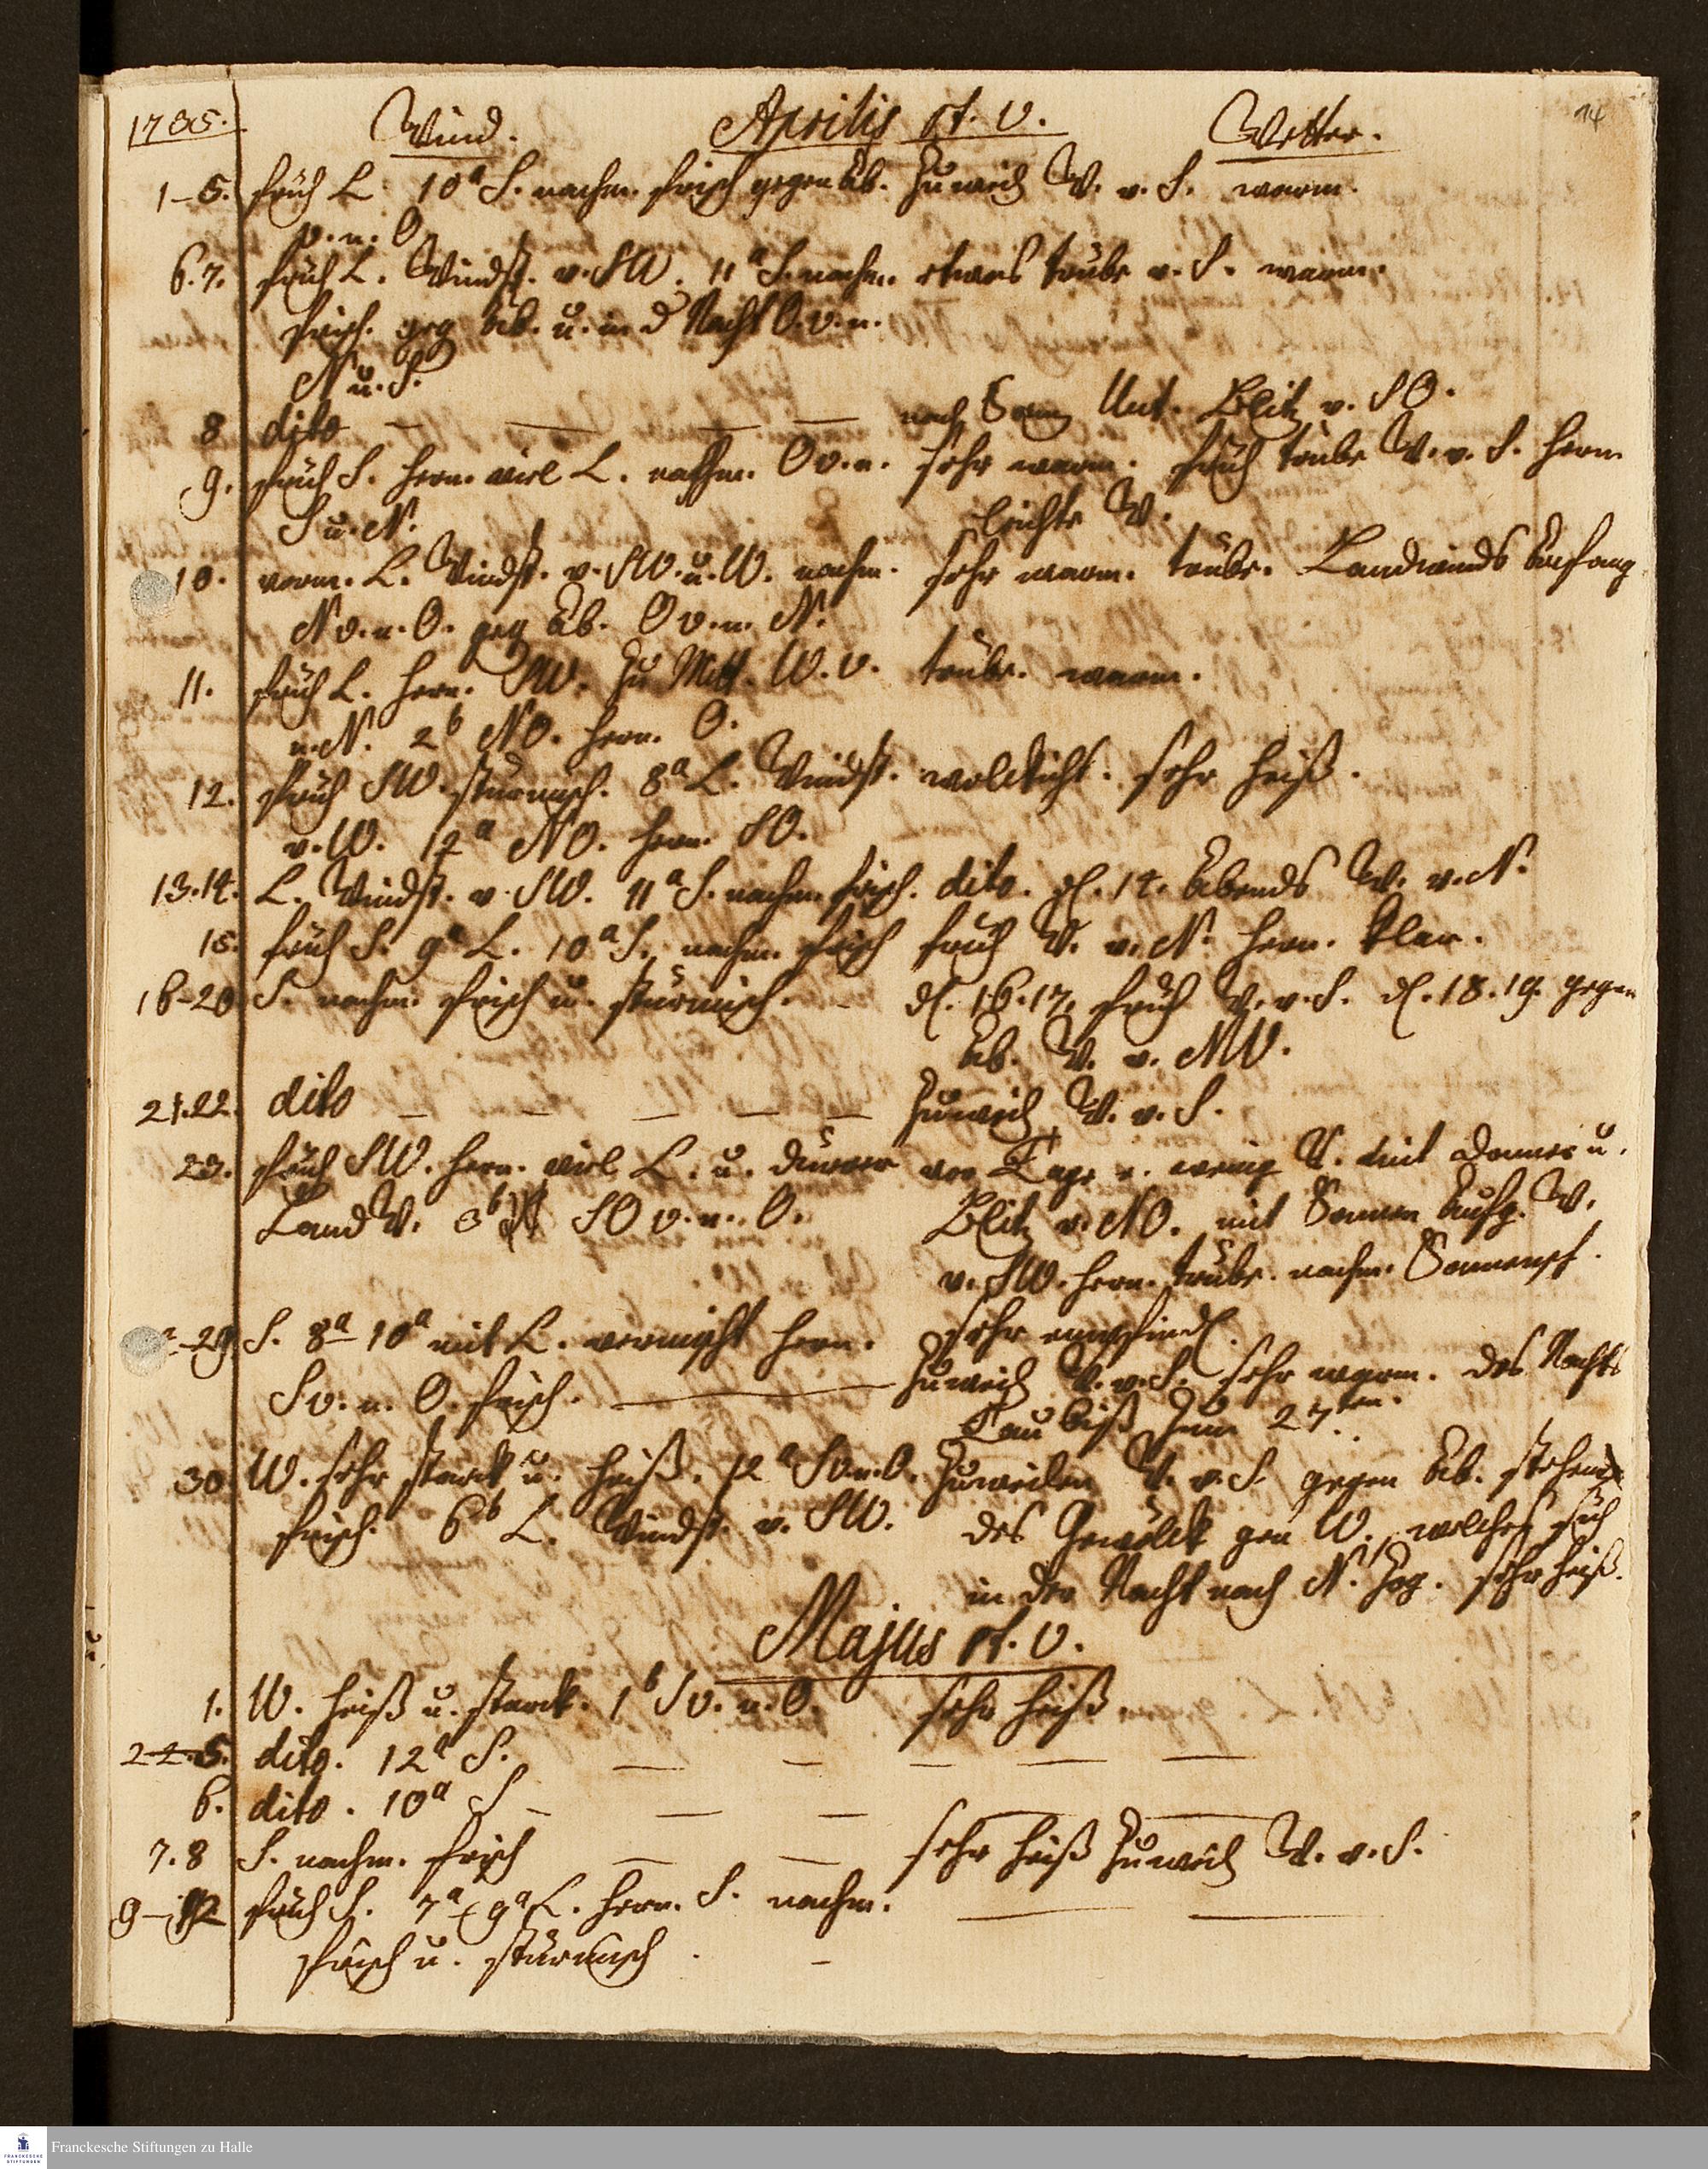 14
1735. Wind. Aprilis st. v. Wetter.
1-5. früh L. 10a S. nachm. frisch gegen Ab. zuweil W. v. S. warm.
v. n. O.
6.7. früh L. Windst. v. SW. 11a S. nachm. etwas trübe v. S. warm.
frisch. geg Ab. u. in d Nacht O. v. n.
N u. S.
8 dito — — — — nach Sonn Unt. Blitz v. SO.
9. früh S. hern. viel L. nachm. O v. n. sehr warm. früh trübe W. v. S. hern
S u. N. leichte W.
10. vorm. L. Windst. v. SW. u. W. nachm. sehr warm. trübe. Landwinds Anfang
N v. n. O. geg Ab. O v. n. N.
11. früh L. hern. SW. zu Mitt. W. v. trübe. warm.
n. N. 2b NO. hern. O.
12. früh SW. stürmisch. 8a L. Windst. wolckicht. sehr heiß.
v. W. 12a NO. hern. SO.
13.14. L. Windst. v. SW. 11a S. nachm. frisch. dito. d. 14. Abends W. v. N.
15. früh S. 9a L. 10a S. nachm. frisch früh W. v. N. hern. klar.
16-20 S. nachm. frisch u. stürmisch. - d. 16.17. früh W. v. S. d. 18.19. gegen
Ab. W. v. NW.
21.22. dito — — — — — zuweil W. v. S.
23. früh SW. hern. viel L. u. dürrer vor Tage e. wenig W. mit Donner u.
Land W. 3b SO v. n. O. Blitz v. NO. mit Sonnen Aufg. W.
v. SW. hern. trübe. nachm. Sonnensch.
-29 S. 8a-10a mit L. vermischt hern. sehr empfindl.
S v. n. O. frisch. — zuweil W. v. S. sehr warm. des Nachts
Tau biß zum 27ten.
30 W. sehr starck u. heiß. 12a S v. n. O. zuweilen W. v. S. gegen Ab. stehen
frisch. 6b L. Windst. v. SW. des Gewölck gen W. welches sich
in der Nacht nach N. zog. sehr heiß.
Majus st. v.
1. W. heiß u. starck. 1b S v. n. O. sehr heiß
2-5. dito. 12a S. — — — — —
6. dito. 10a S — — — — —
7.8 S. nachm. frisch — — sehr heiß zuweil W. v. S.
9-12 früh S. 7a 9a L. hern. S. nachm. — —
frisch u. stürmisch. -
Franckesche Stiftungen zu Halle
FRANCKESCHE
STIFTUNGEN